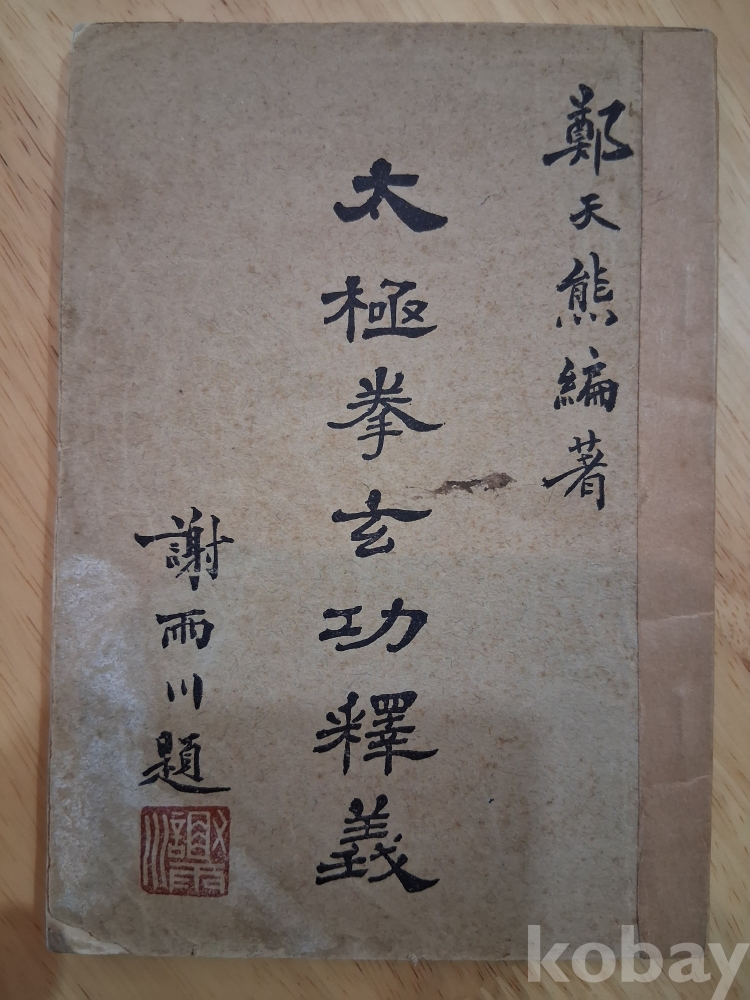 鄭天熊編著
太極拳玄功釋義
謝雨川題
謝雨川
kobay